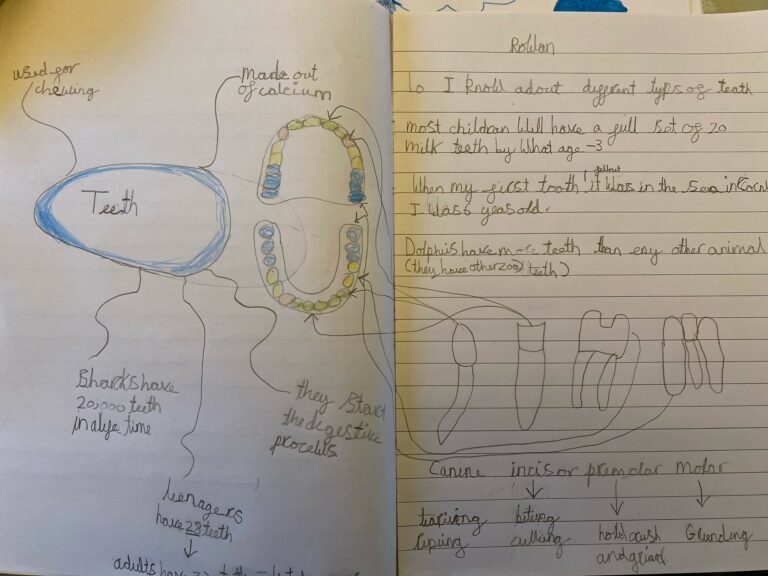 used for
chewing
made out
of calcium
Teeth
Sharks have
20,000 teeth
in a life time
they start
the digestive
process
teenagers
have 28 teeth
adults have
Lo I know adout different typs of teath
most children Will have a full set of 20
milk teeth by What age -3
fellout
When my first tooth, it Was in the Sea in
I Was 6 yeas old.
Dolphis have more teeth than eny other animal
(they have other 200 teeth)
Canine incisor premolar Molar
biting
hold crush
and grind